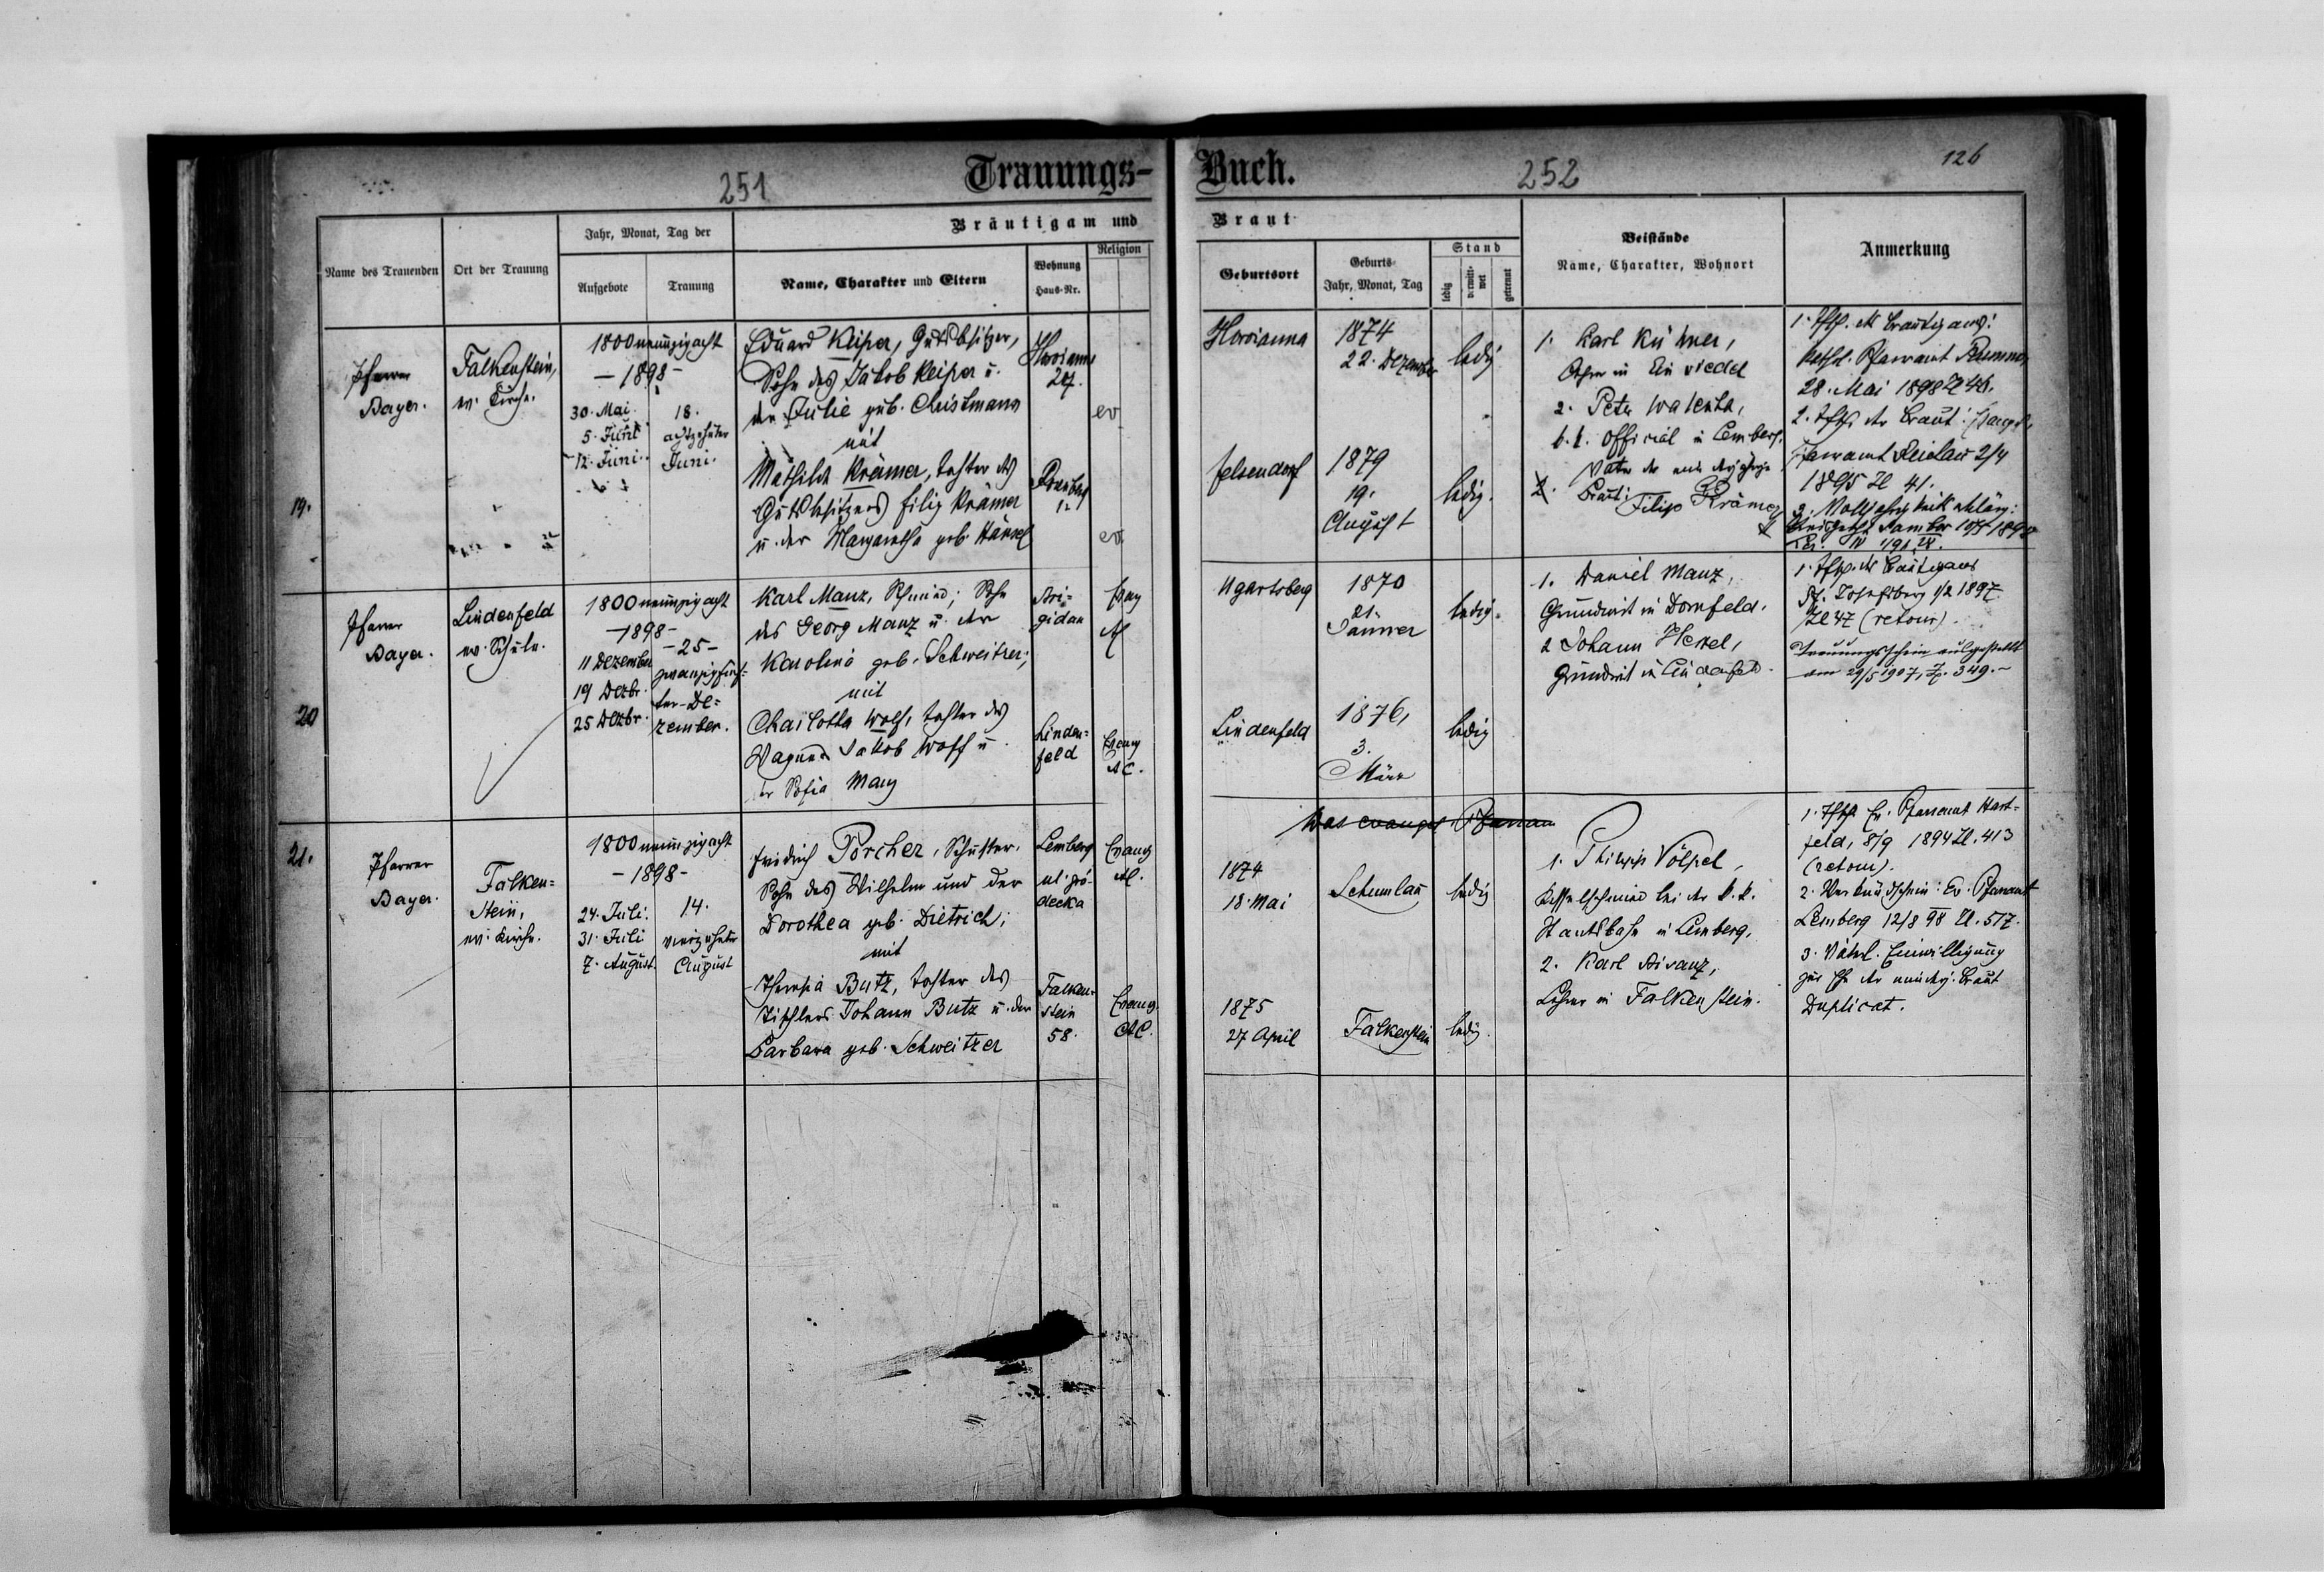 251
Trauungs-
Buch.
252
126
Name des Trauenden
Ort der Trauung
Jahr, Monat, Tag der
Aufgebote
Trauung
Bräutigam und
Name, Charakter und Eltern
Wohnung
Haus-Nr.
Religion
Braut
Geburtsort
Geburts-
Jahr, Monat, Tag
Stand
ledig
verwitt-
wet
getrennt
Beistände
Name, Charakter, Wohnort
Anmerkung
19.
Pfarrer
Bayer.
Falkenstein,
ev. Kirche.
1800neunzigacht
- 1898 -
30. Mai.
5. Juni
12. Juni.
18.
achtzehnter
Juni.
Eduard Keiper, Gutsbesitzer,
Sohn des Jakob Keiper u.
der Julie geb. Christmann
mit
Mathilde Krämer, Tochter des
Gutsbesitzers Filip Krämer
u. der Margaretha geb. Hänsel
24.
12
ev
ev.
Horoianna
1874
22. Dezember
ledig
Felsendorf
1879
19.
August
ledig.
1. Karl Kühner,
in Einsiedel
2. Peter Walenta,
k.k. Official in Lemberg.
Vater der
Braut:
Filip Krämer
1. des Bräutigams:
Pfarramt
28. Mai 1898 Zl 46.
2. der Braut:
Pfarramt Reichau 2/4
1895 Zl 41.
3.
Sambor 1898
IV
20
Pfarrer
Bayer.
Lindenfeld
ev. Schule.
1800neunzigacht
- 1898 -
11 Dezember
19 Dezbr.
25 Dezbr.
- 25 -
zwanzigfünf-
ter De-
zember.
Karl Manz, Schmied; Sohn
des Georg Manz u. der
Karolina geb. Schweitzer;
mit
Charlotta Wolf, Tochter des
Wagners Jakob Wolf u.
der Sofia Manz
Bri-
gidau
Linden-
feld
Evang
AC
Evang
AC.
Ugartsberg
1870
21.
Jänner
ledig.
Lindenfeld
1876,
3.
März
ledig
1. Daniel Manz,
Grundwirt in Dornfeld.
2 Johann Hessel,
Grundwirt in Lindenfeld.
1. des Bräutigams
Pf. Josefsberg 1/2 1897
Zl 47 (retour).
Trauungsschein ausgestellt
am 29/5 1907, Z. 349.-
21.
Pfarrer
Bayer.
Falken-
stein,
ev. Kirche.
1800neunzigacht
- 1898 -
24. Juli.
31. Juli
7. August.
14.
vierzehnter
August
Friedrich Porcher, Schuster,
Sohn des Wilhelm und der
Dorothea geb. Dietrich;
mit
Theresia Butz, Tochter des
Tischlers Johann Butz u. der
Barbara geb. Schweitzer
Lemberg
ul. gró-
decka
Falken-
stein
58.
Evang
AC.
Evang.
AC.
Das evangel. Pfarram
1874
18. Mai
Schumlau
ledig
1875
27 April
Falkenstein
ledig.
1. Philipp Völpel,
Kesselschmied bei der k.k.
Staatsbahn in Lemberg.
2. Karl
Lehrer in Falkenstein.
1. Ev. Pfarramt Hart-
feld, 8/9 1894 Zl. 413
(retour).
2. Verkündschein: Ev. Pfarramt
Lemberg 12/8 98 Zl. 517.
3. Väterl. Einwilligung
zur Ehe der minderj. Braut
Duplicat.